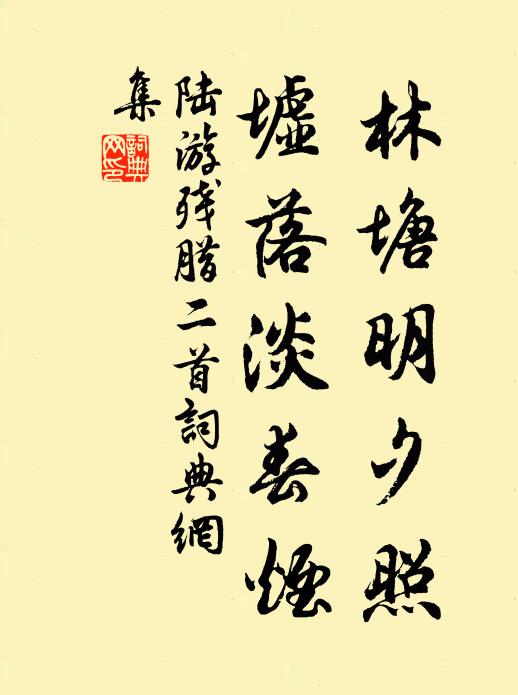 林塘明夕照
墟落淡春煙
陆游残腊二首詞典網
集
詞典
网印